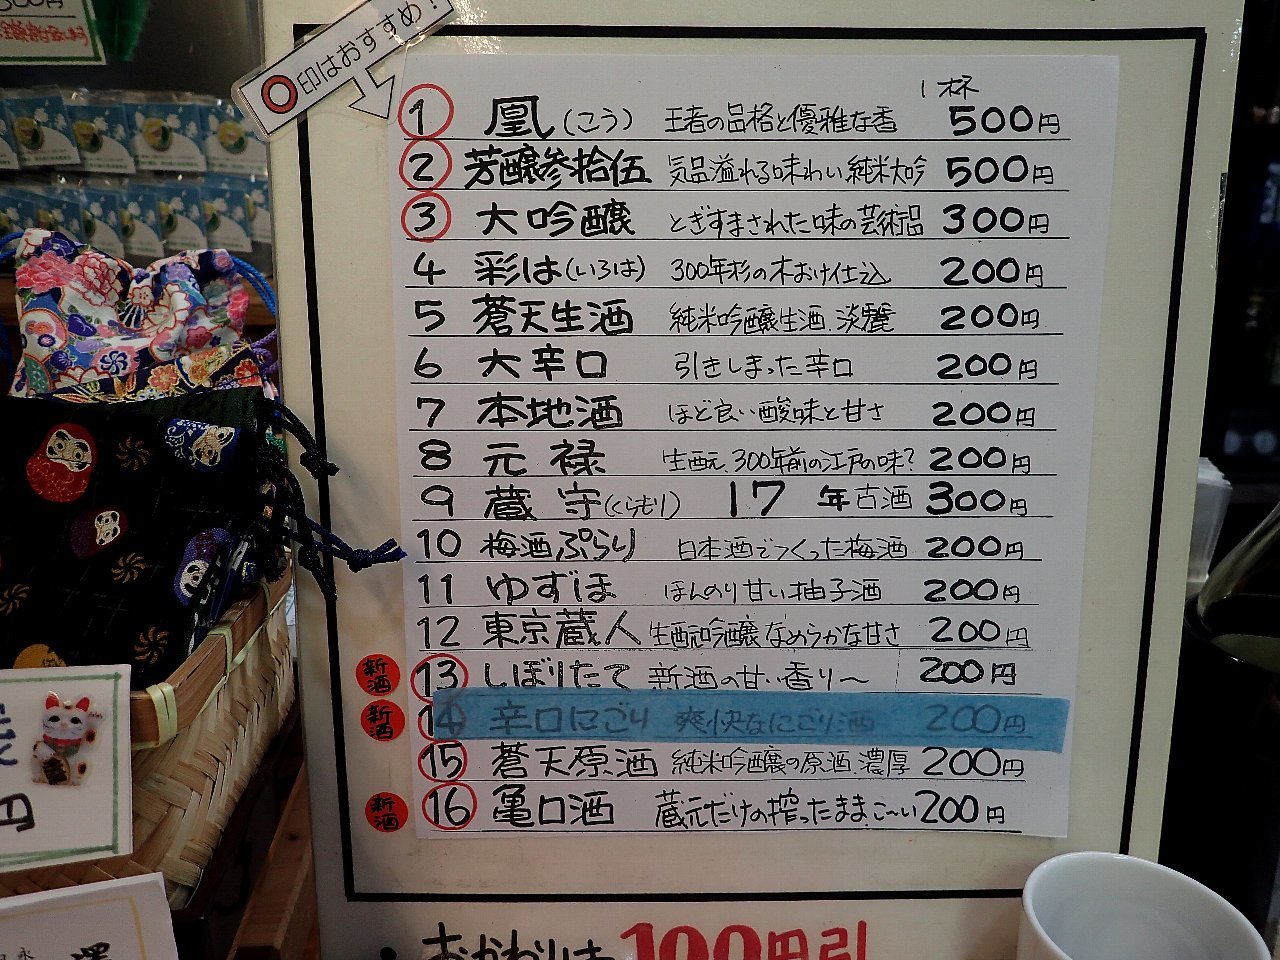 ○印はおすすめ!
1杯
1 凰(こう) 王者の品格と優雅な香 500円
2 芳醸参拾伍 気品溢れる味わい 純米大吟 500円
3 大吟醸 とぎすまされた味の芸術品 300円
4 彩は(いろは) 300年杉の木おけ仕込 200円
5 蒼天生酒 純米吟醸生酒、淡麗 200円
6 大辛口 引きしまった辛口 200円
7 本地酒 ほど良い酸味と甘さ 200円
8 元禄 生酛、300年前の江戸の味? 200円
9 蔵守(くらもり) 17年古酒 300円
10 梅酒ぷらり 日本酒でつくった梅酒 200円
11 ゆずほ ほんのり甘い柚子酒 200円
12 東京蔵人 生酛吟醸 なめらかな甘さ 200円
新酒 13 しぼりたて 新酒の甘い香り〜 200円
新酒 14 辛口にごり 爽快なにごり酒 200円
15 蒼天原酒 純米吟醸の原酒、濃厚 200円
新酒 16 亀口酒 蔵元だけの搾ったまま こ〜い 200円
・おかわりは100円引
円